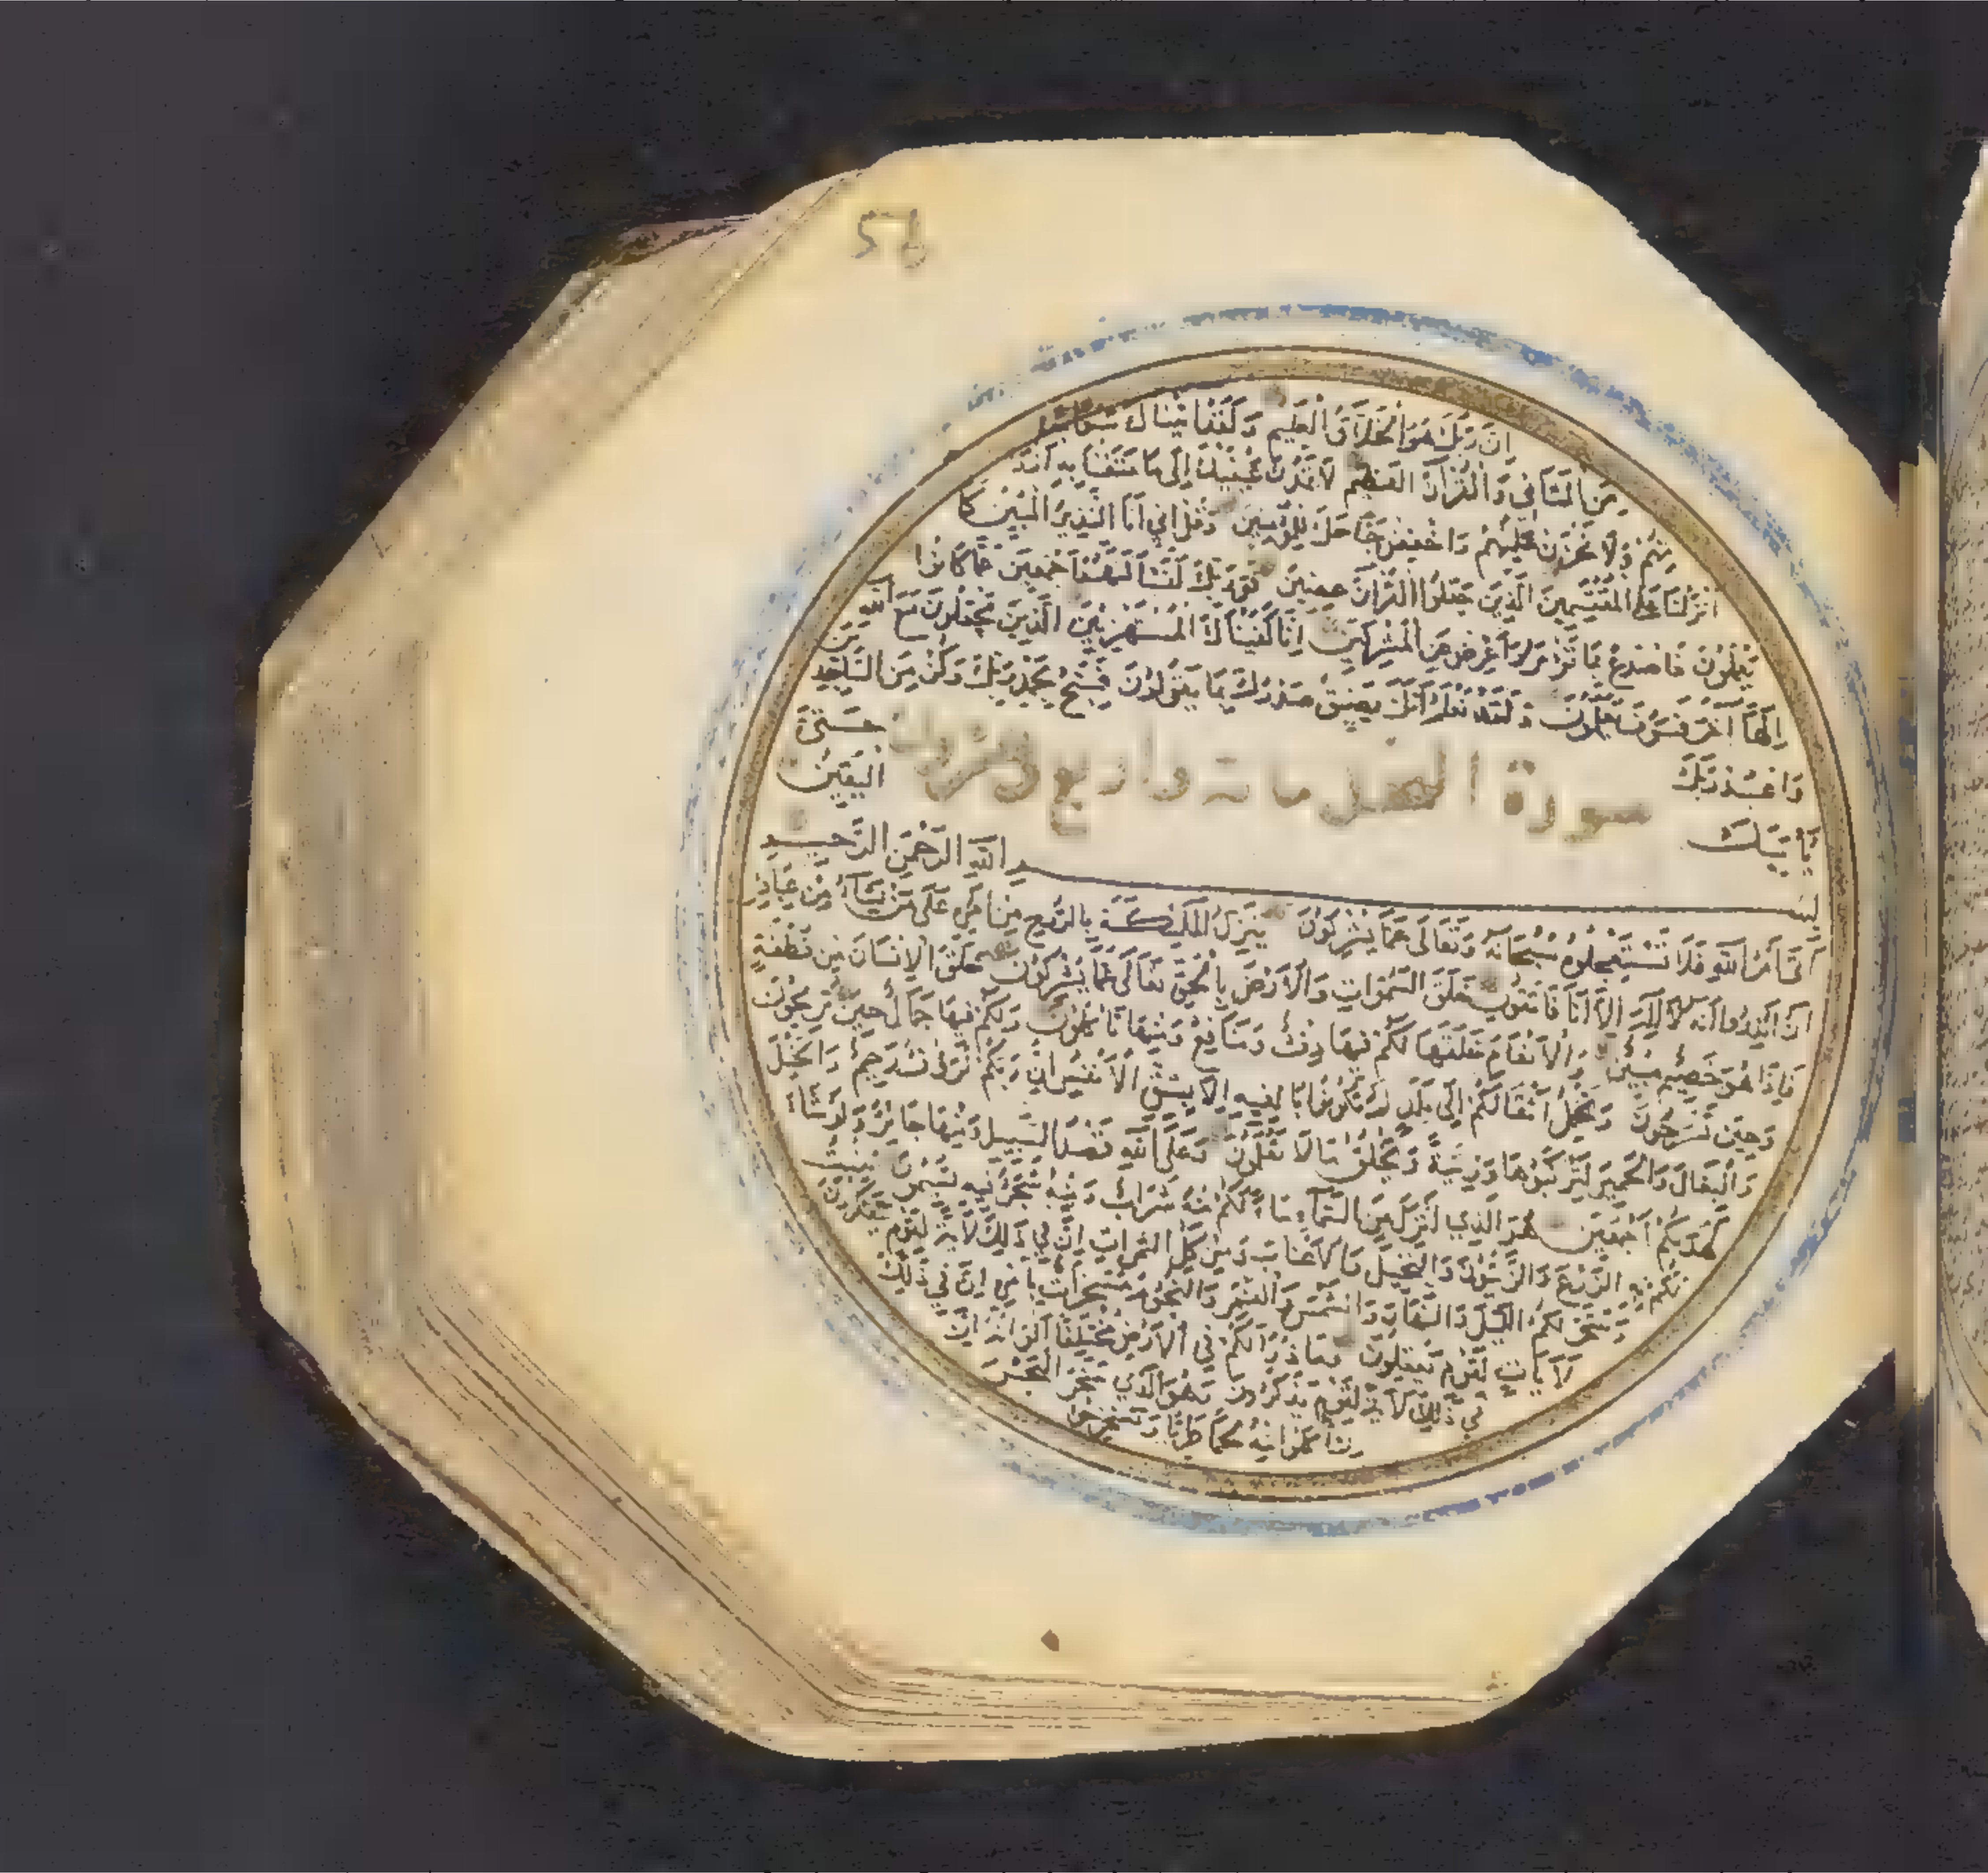 56
ان ربك هو الخلاق العليم ولقد اتيناك سبعا
من المثاني والقرآن العظيم لا تمدن عينيك إلى ما متعنا به ازواجا
منهم ولا تحزن عليهم واخفض جناحك للمؤمنين وقل اني انا النذير المبين كما
انزلنا على المقتسمين الذين جعلوا القرآن عضين فوربك لنسألنهم اجمعين عما كانوا
يعملون فاصدع بما تؤمر واعرض عن المشركين انا كفيناك المستهزئين الذين يجعلون مع الله
الها آخر فسوف يعلمون ولقد نعلم انك يضيق صدرك بما يقولون فسبح بحمد ربك وكن من الساجدين
واعبد ربك حتى
يأتيك اليقين
سورة النحل مائة
بسم الله الرحمن الرحيم
أتى أمر الله فلا تستعجلوه سبحانه وتعالى عما يشركون ينزل الملئكة بالروح من امره على من يشاء من عباده
ان انذروا انه لا اله الا انا فاتقون خلق السموات والارض بالحق تعالى عما يشركون خلق الانسان من نطفة
فاذا هو خصيم مبين والانعام خلقها لكم فيها دفء ومنافع ومنها تأكلون ولكم فيها جمال حين تريحون
وحين تسرحون وتحمل اثقالكم الى بلد لم تكونوا بالغيه الا بشق الانفس ان ربكم لرؤف رحيم والخيل
والبغال والحمير لتركبوها وزينة ويخلق ما لا تعلمون وعلى الله قصد السبيل ومنها جائر ولو شاء
لهديكم اجمعين هو الذي انزل من السماء ماء لكم منه شراب ومنه شجر فيه تسيمون ينبت
لكم به الزرع والزيتون والنخيل والاعناب ومن كل الثمرات ان في ذلك لآية لقوم يتفكرون
وسخر لكم الليل والنهار والشمس والقمر والنجوم مسخرات بامره ان في ذلك
لآيات لقوم يعقلون وما ذرأ لكم في الارض مختلفا الوانه ان
في ذلك لآية لقوم يذكرون وهو الذي سخر البحر
لتأكلوا منه لحما طريا وتستخرجوا